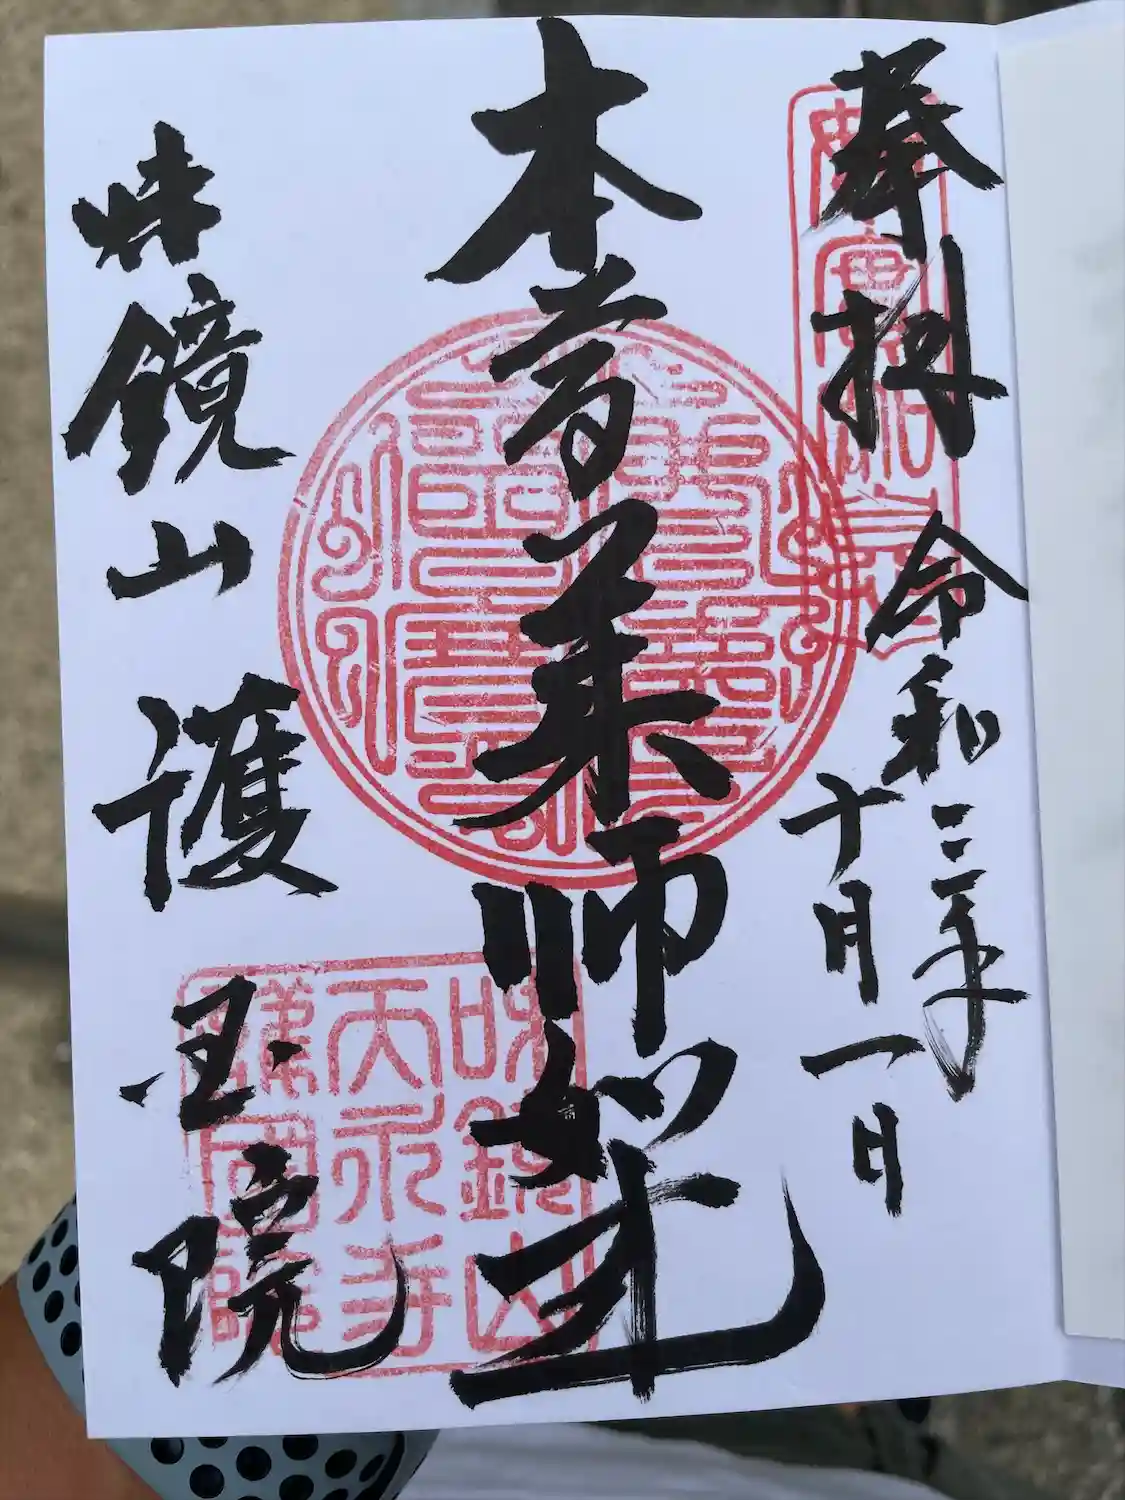 奉拝
令和三年
十月一日
本尊薬師如来
味鏡山 護国院
味鏡山
天永寺
護國院